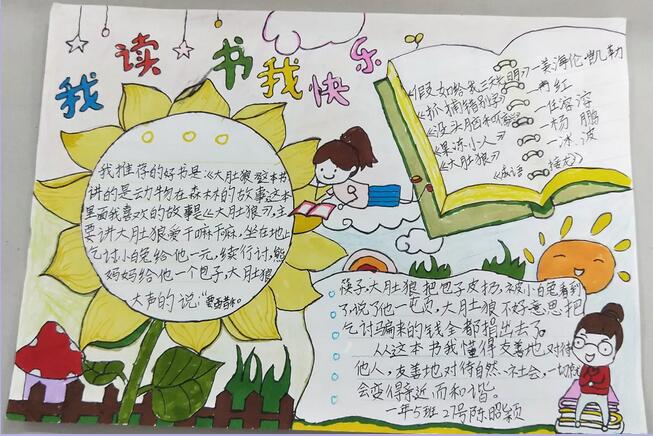 我读书我快乐
《假如给我三天光明》—美海伦凯勒
《抓捕特别行
—任溶溶
《没头脑和
—杨鹏
《果冻小人》
—冰波
《大肚狼》
《成语接龙》
我推荐的好书是:《大肚狼》这本书
讲的是动物在森林的故事这本
里面我喜欢的故事是《大肚狼》,主
要讲大肚狼爱干嘛干嘛,坐在地上
乞讨小白兔给他一元,续行讨,熊
妈妈给他一个包子,大肚狼
大声的说:
筷子,大肚狼把包子皮扔,被小白兔看到
了,说了他一
大肚狼不好意思把
乞讨
来的钱全都捐出去了。
从这本书我懂得友善地对待
他人,友善地对待自然、社会,一切
会变得亲近而和谐。
一年5班27号陈
颖